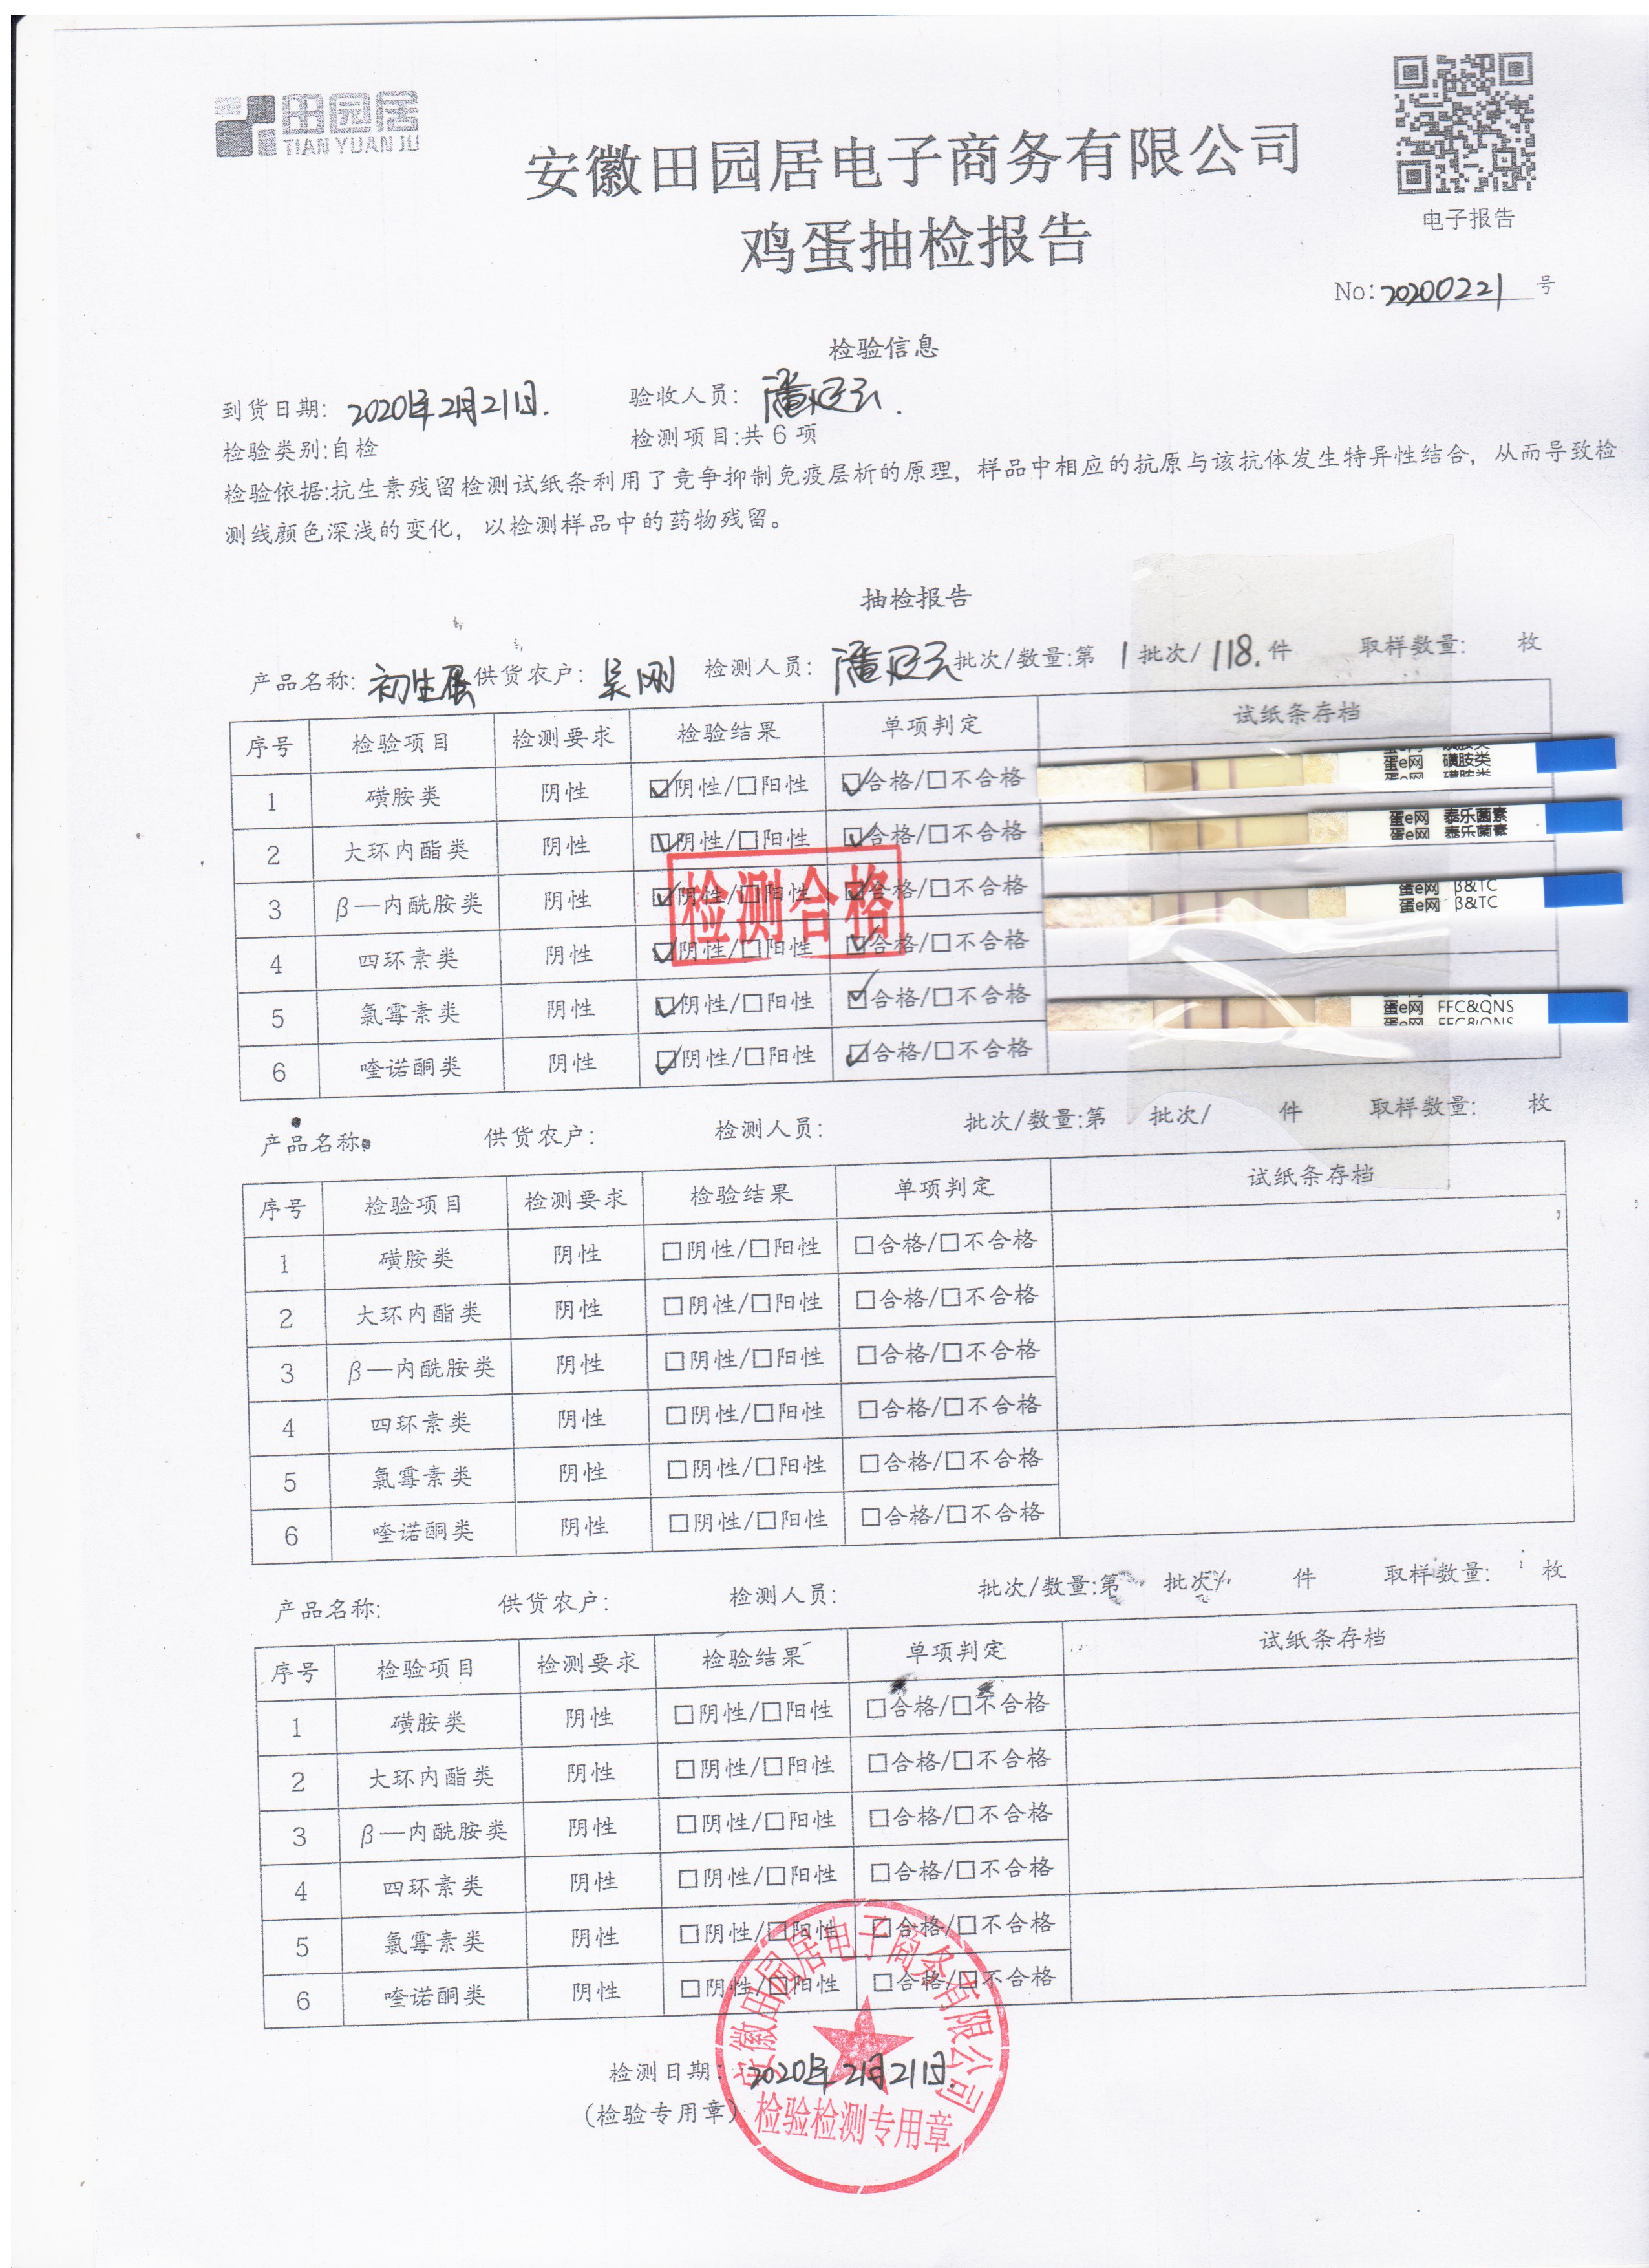 田园居
TIAN YUAN JU
安徽田园居电子商务有限公司
鸡蛋抽检报告
电子报告
No:20200221号
检验信息
到货日期: 2020年2月21日. 验收人员: 潘
检验类别:自检 检测项目:共6项
检验依据:抗生素残留检测试纸条利用了竞争抑制免疫层析的原理，样品中相应的抗原与该抗体发生特异性结合，从而导致检
测线颜色深浅的变化，以检测样品中的药物残留。
抽检报告
产品名称: 初生蛋 供货农户: 吴刚 检测人员: 潘 批次/数量:第 1 批次/ 118. 件 取样数量: 枚
序号 检验项目 检测要求 检验结果 单项判定 试纸条存档
1 磺胺类 阴性 ☑阴性/□阳性 ☑合格/□不合格 蛋e网 磺胺类
2 大环内酯类 阴性 ☑阴性/□阳性 ☑合格/□不合格 蛋e网 泰乐菌素
蛋e网 泰乐菌素
3 β—内酰胺类 阴性 ☑阴性/□阳性 ☑合格/□不合格 蛋e网 β&TC
蛋e网 β&TC
检测合格
4 四环素类 阴性 ☑阴性/□阳性 ☑合格/□不合格
5 氯霉素类 阴性 ☑阴性/□阳性 ☑合格/□不合格 蛋e网 FFC&QNS
蛋e网 FFC&QNS
6 喹诺酮类 阴性 ☑阴性/□阳性 ☑合格/□不合格
产品名称: 供货农户: 检测人员: 批次/数量:第 批次/ 件 取样数量: 枚
序号 检验项目 检测要求 检验结果 单项判定 试纸条存档
1 磺胺类 阴性 □阴性/□阳性 □合格/□不合格
2 大环内酯类 阴性 □阴性/□阳性 □合格/□不合格
3 β—内酰胺类 阴性 □阴性/□阳性 □合格/□不合格
4 四环素类 阴性 □阴性/□阳性 □合格/□不合格
5 氯霉素类 阴性 □阴性/□阳性 □合格/□不合格
6 喹诺酮类 阴性 □阴性/□阳性 □合格/□不合格
产品名称: 供货农户: 检测人员: 批次/数量:第 批次/ 件 取样数量: 枚
序号 检验项目 检测要求 检验结果 单项判定 试纸条存档
1 磺胺类 阴性 □阴性/□阳性 □合格/□不合格
2 大环内酯类 阴性 □阴性/□阳性 □合格/□不合格
3 β—内酰胺类 阴性 □阴性/□阳性 □合格/□不合格
4 四环素类 阴性 □阴性/□阳性 □合格/□不合格
5 氯霉素类 阴性 □阴性/□阳性 □合格/□不合格
6 喹诺酮类 阴性 □阴性/□阳性 □合格/□不合格
安徽田园居电子商务有限公司
检测日期: 2020年2月21日.
(检验专用章)
检验检测专用章